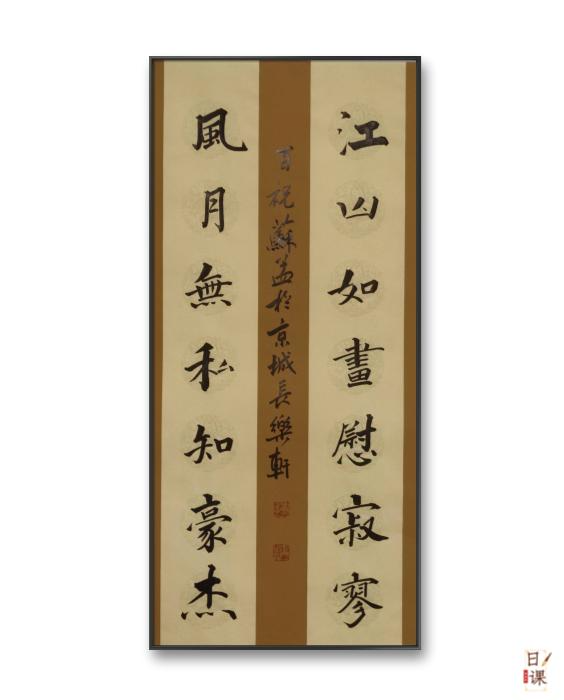 江山如畫慰寂寥
百祝蘇於京城長樂軒
風月無私知豪杰
日课